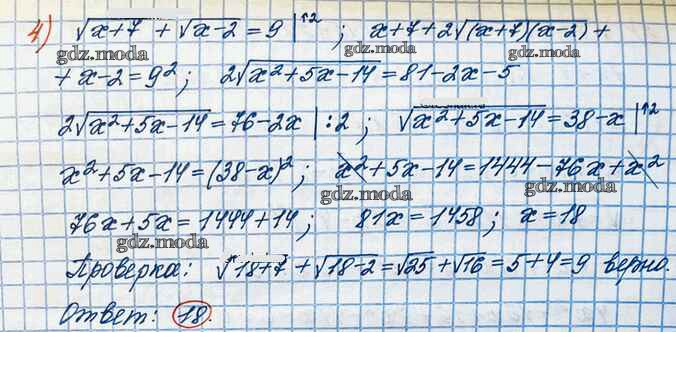 4) √x+7 + √x-2 = 9 |↑2 ; x+7+2√(x+7)(x-2) +
gdz.moda gdz.moda
+ x-2 = 9²; 2√x²+5x-14 = 81-2x-5
2√x²+5x-14 = 76-2x |:2 ; √x²+5x-14 = 38-x |↑2
gdz.moda gdz.moda
x²+5x-14 = (38-x)²; x²+5x-14 = 1444-76x+x²
gdz.moda gdz.moda
76x+5x = 1444+14; 81x = 1458; x = 18
gdz.moda
Проверка: √18+7 + √18-2 = √25 + √16 = 5+4 = 9 верно.
Ответ: 18.